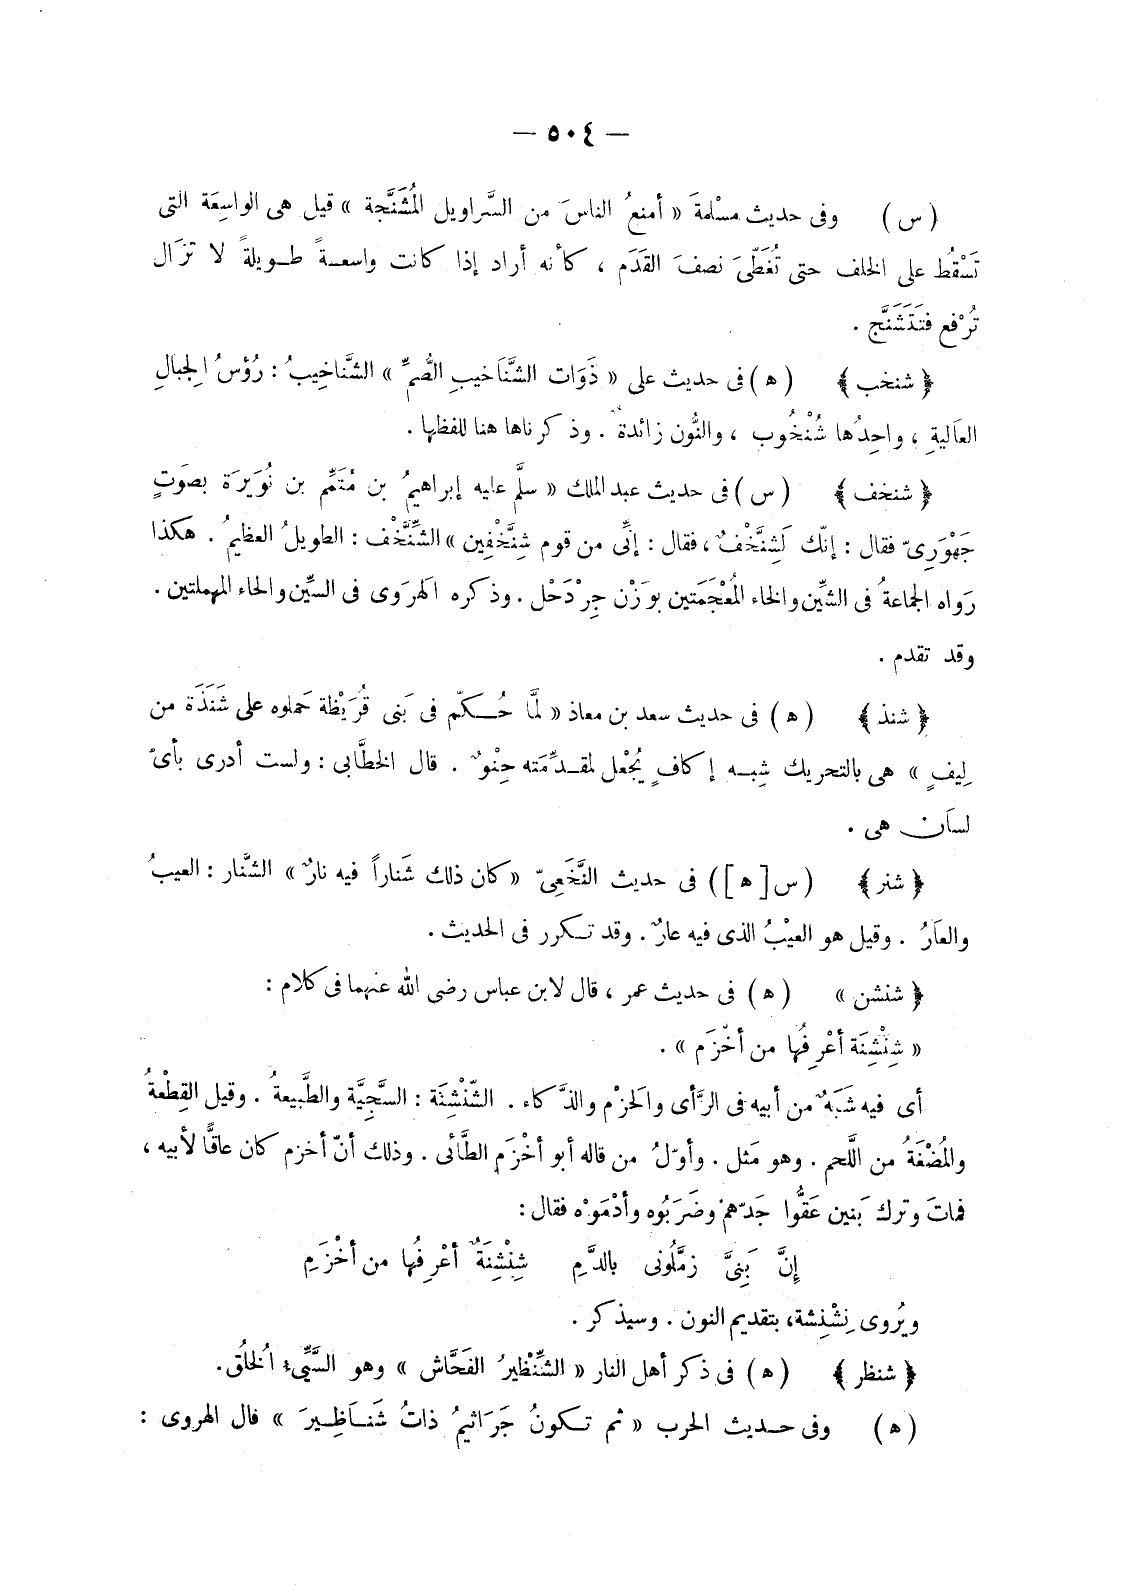 — ٥٠٤ —
(س) وفى حديث مسْلمةَ « أمنعُ الناسَ من السَّراويل المُشَنَّجة » قيل هى الواسِعَة التى
تَسْقُط على الخلف حتى تُغَطِّىَ نصفَ القَدَم ، كأنه أراد إذا كانت واسعةً طويلةً لا تزَال
تُرْفع فتَتَشَنَّج .
﴿ شنخب ﴾ (ه) فى حديث على « ذَوَات الشَّنَاخيبِ الصُّمِّ » الشَّناخِيبُ : رُؤسُ الجبالِ
العَاليةِ ، واحِدُها شُنْخُوب ، والنُّون زائدة . وذكرناها هنا للفظها .
﴿ شنخف ﴾ (س) فى حديث عبد الملك « سلَّم عليه إبراهيمُ بن مُتَمِّم بن نُوَيرَة بصَوتٍ
جَهْوَرِىّ فقال : إنّك لَشِنَّخْفٌ ، فقال : إنِّى من قوم شِنَّخْفِين » الشِّنَّخْف : الطويلُ العظيمُ . هكذا
رَواه الجماعةُ فى الشِّين والخاء المُعْجَمَتين بوَزْن جِرْدَحْل . وذكره الهرَوى فى السِّين والحاء المهملتين .
وقد تقدم .
﴿ شنذ ﴾ (ه) فى حديث سعد بن معاذ « لمَّا حُكّم فى بَنى قُرَيْظة حَملوه على شَنَذَة من
لِيفٍ » هى بالتحريك شِبه إكافٍ يُجْعل لمقدِّمَته حِنْوٌ . قال الخطَّابى : ولست أدرى بأىّ
لسَان هى .
﴿ شنر ﴾ (س [ه]) فى حديث النَّخَعِىّ « كان ذلك شَناراً فيه نارٌ » الشَّنار : العيبُ
والعَارُ . وقيل هو العيْبُ الذى فيه عارٌ . وقد تكرر فى الحديث .
﴿ شنشن » (ه) فى حديث عمر ، قال لابن عباس رضى الله عنهما فى كلام :
« شِنْشِنَة أعْرِفُها من أخْزَم » .
أى فيه شَبَهٌ من أبيه فى الرَّأى والحَزْم والذَّكاء . الشِّنْشِنَة : السَّجِيَّة والطَّبيعةُ . وقيل القِطْعةُ
والمُضْغَةُ من اللَّحم . وهو مَثل . وأوّلُ من قاله أبو أخْزَم الطَّائى . وذلك أنّ أخزم كان عاقًّا لأبيه ،
فماتَ وترك بَنين عَقُّوا جَدّهمْ وضَرَبُوه وأدْمَوْه فقال :
إنَّ بَنِىَّ زمَّلُونى بالدَّمِ شِنْشِنَةٌ أعْرِفُها من أخْزَمِ
ويُروى نِشْنِشة، بتقديم النون . وسيذكر .
﴿ شنظر ﴾ (ه) فى ذكر أهل النار « الشِّنْظيرُ الفَحَّاش » وهو السَّيِّىء الخلُق .
(ه) وفى حديث الحرب « ثم تكونُ جَرَاثيمُ ذاتُ شَناظِيرَ » قال الهروى :